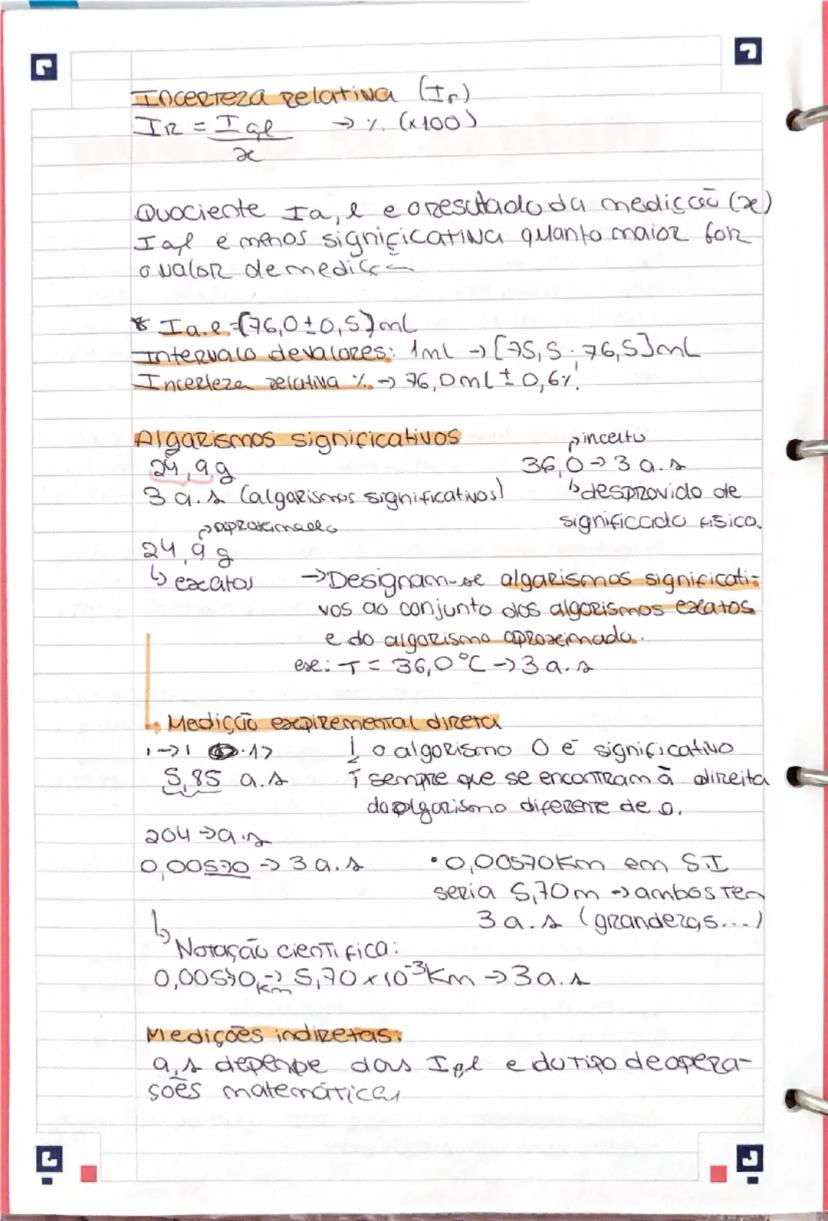 Incerteza relativa (Ir)
IR = Ia,l / x → % (x100)
Quociente Ia,l e o resultado da medição (x)
Ia,l é menos significativa quanto maior for
o valor de medição
* Ia.l = (76,0 ± 0,5) mL
Intervalo de valores: 1mL → [75,5 ; 76,5] mL
Incerteza relativa % → 76,0 mL ± 0,6%
Algarismos significativos
→ incerto
24,9 g
36,0 → 3 a.s
3 a.s (algarismos significativos)
↳ desprovido de
significado físico.
→ aproximado
24,9 g
↳ exatos
→ Designam-se algarismos significati-
vos ao conjunto dos algarismos exatos
e do algarismo aproximado.
ex: T = 36,0 °C → 3 a.s
↳ Medição expiremental direta
! o algarismo 0 é significativo
5,85 a.s
sempre que se encontram à direita
do algarismo diferente de 0.
204 → a.s
0,00570 → 3 a.s
• 0,00570 Km em S.I
seria 5,70 m → ambos tem
3 a.s (grandezas...)
↳ Notação científica:
0,00570 km → 5,70 x 10⁻³ Km → 3 a.s
Medições indiretas:
a,s depende das Ia,l e do tipo de opera-
sões matemáticas